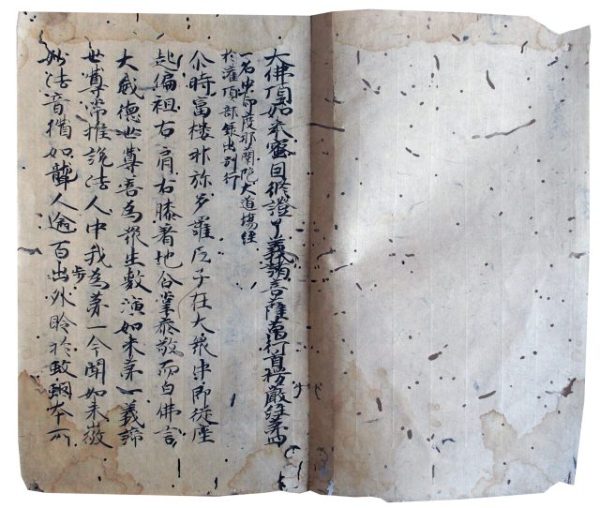 大佛頂如來密因修證了義諸菩薩萬行首楞嚴經第四
一名中印度那蘭陀大道場經
於灌頂部錄出別行
尒時富樓那弥多羅尼子在大衆中即從座
起偏袒右肩右膝著地合掌恭敬而白佛言
大威德世尊善為衆生敷演如来苐一義諦
世尊常推說法人中我為苐一今聞如来微
步
妙法音猶如聾人逾百出外聆於蚊蚋本所